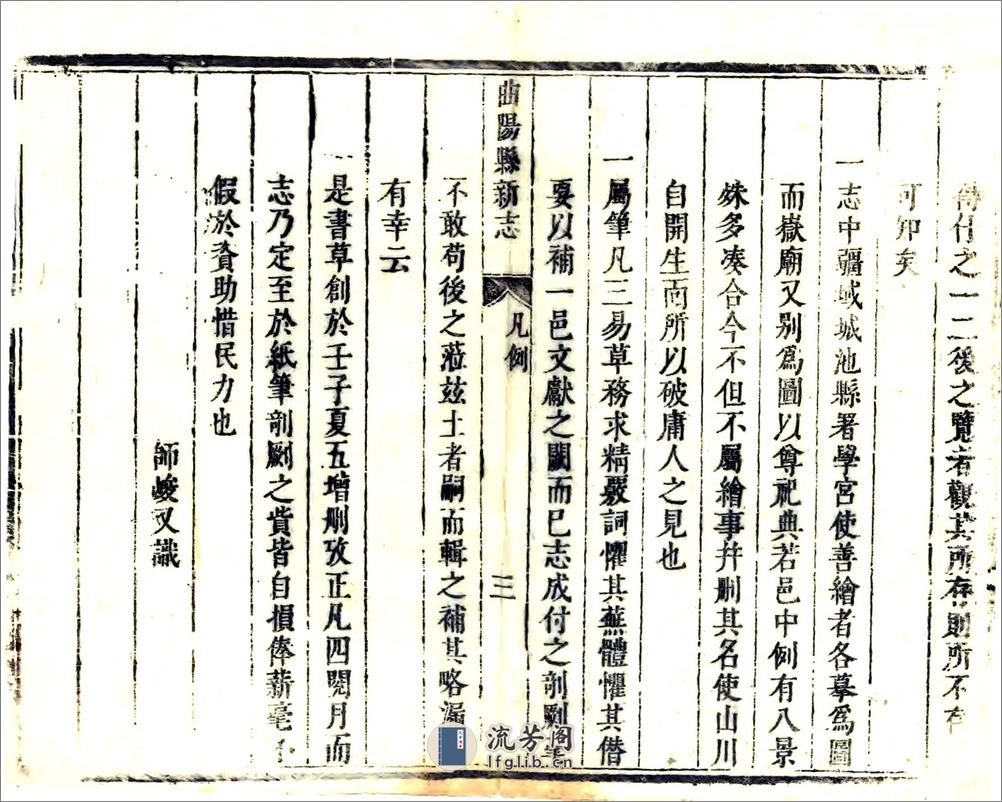 傳什之一二後之覽者觀其所存則所不存
可知矣
一志中疆域城池縣署學宮使善繪者各摹爲圖
而嶽廟又别爲圖以尊祀典若邑中例有八景
姝多凑合今不但不屬繪事幷删其名使山川
自開生面所以破庸人之見也
一屬筆凡三易草務求精嚴詞懼其蕪體懼其僭
要以補一邑文獻之闕而已志成付之剞劂
曲陽縣新志 凡例 三
不敢苟後之蒞玆土者嗣而輯之補其略漏
有幸云
一是書草創於壬子夏五增删攷正凡四閱月而
志乃定至於紙筆剞劂之貲皆自損俸薪毫
假於資助惜民力也
師峻又識
流芳阁
lfglib.cn